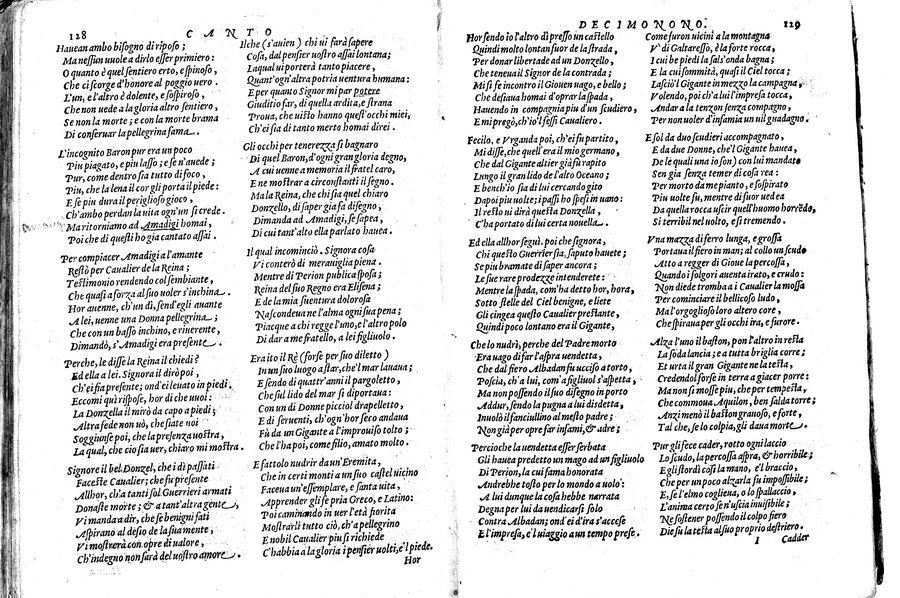 128 CANTO
Hauean ambo bisogno di riposo;
Ma nessun uuole a dirlo esser primiero:
O quanto è quel sentiero erto, e spinoso,
Che ci scorge d'honore al poggio uero.
L'un, e l'altro è dolente, e sospiroso,
Che non uede a la gloria altro sentiero,
Se non la morte; e con la morte brama
Di conseruar la pellegrina fama.
L'incognito Baron pur era un poco
Piu piagato, e piu lasso; e se n'auede;
Pur, come dentro sia tutto di foco,
Piu, che la lena il cor gli porta il piede:
E se piu dura il periglioso gioco,
Ch'ambo perdan la uita ogn'un si crede.
Ma ritorniamo ad Amadigi homai,
Poi che di questi ho gia cantato assai.
Per compiacer Amadigi a l'amante
Restò per Caualier de la Reina;
Testimonio rendendo col sembiante,
Che quasi a forza al suo uoler s'inchina.
Hor auenne, ch'un dì, send'egli auante
A lei, uenne una Donna pellegrina;
Che con un basso inchino, e riuerente,
Dimandò, s'Amadigi era presente.
Perche, le disse la Reina il chiedi?
Ed ella a lei. Signora il dirò poi,
Ch'ei fia presente; ond'ei leuato in piedi.
Eccomi quì rispose, hor di che uuoi:
La Donzella il mirò da capo a piedi;
Altra fede non uò, che siate uoi
Soggiunse poi, che la presenza uostra,
La qual, che cio sia uer, chiaro mi mostra.
Signore il bel Donzel, che i dì passati
Faceste Caualier; che fu presente
Allhor, ch'a tanti sol Guerrieri armati
Donaste morte; & a tant'altra gente,
Vi manda a dir, che se benigni fati
Aspirano al desio de la sua mente,
Vi mostrerà con opre di ualore,
Ch'indegno non sarà del uostro amore.
Ilche (s'auien) chi ui farà sapere
Cosa, dal pensier uostro assai lontana;
Laqual ui porterà tanto piacere,
Quant'ogn'altra potria uentura humana:
E per quanto Signor mi par potere
Giuditio far, di quella ardita, e strana
Proua, che uisto hanno quest'occhi miei,
Ch'ei sia di tanto merto homai direi.
Gli occhi per tenerezza si bagnaro
Di quel Baron, d'ogni gran gloria degno,
A cui uenne a memoria il fratel caro,
E ne mostrar a circonstanti il segno.
Ma la Reina, che chi sia quel chiaro
Donzello, di saper gia fa disegno,
Dimanda ad Amadigi, se sapea,
Di cui tant'alto ella parlato hauea.
Il qual incominciò. Signora cosa
Vi conterò di merauiglia piena.
Mentre di Perion publica sposa;
Reina del suo Regno era Elisena;
E de la mia suentura dolorosa
Nascondeua ne l'alma ogni sua pena;
Piacque a chi regge l'uno, e l'altro polo
Di dar a me fratello, a lei figliuolo.
Era ito il Rè (forse per suo diletto)
In un suo luogo a star, che'l mar lauaua;
E sendo di quattr'anni il pargoletto,
Che sul lido del mar si diportaua:
Con un di Donne picciol drapelletto,
E di serueuti, ch'ogn'hor seco andaua
Fù da un Gigante a l'improuiso tolto;
Che l'ha poi, come figlio, amato molto.
E fattolo nudrir da un'Eremita,
Che in certi monti a un suo castel uicino
Faceua un'essemplare, e santa uita,
Apprender gli fe pria Greco, e Latino:
Poi caminando in uer l'età fiorita
Mostrarli tutto ciò, ch'a pellegrino
E nobil Caualier piu si richiede
C'habbia a la gloria i pensier uolti, e'l piede.
Hor
DECIMONONO. 129
Hor sendo io l'altro dì presso un castello
Quindi molto lontan fuor de la strada,
Per donar libertade ad un Donzello,
Che teneua il Signor de la contrada;
Mi si fe incontro il Giouen uago, e bello;
Che desiaua homai d'oprar la spada,
Hauendo in compagnia piu d'un scudiero,
E mi pregò, ch'io'l fessi Caualiero.
Fecilo, e Vrganda poi, ch'ei fu partito,
Mi disse, che quell'era il mio germano,
Che dal Gigante altier già fu rapito
Lungo il gran lido de l'alto Oceano;
E bench'io sia di lui cercando gito
Dapoi piu uolte; i passi ho spesi in uano:
Il resto ui dirà questa Donzella,
C'ha portato di lui certa nouella.
Ed ella allhor seguì. poi che signora,
Chi questo Guerrier sia, saputo hauete;
Se piu bramate di saper ancora;
Le sue rare prodezze intenderete:
Mentre la spada, com'ha detto hor, hora,
Sotto stelle del Ciel benigne, e liete
Gli cingea questo Caualier prestante,
Quindi poco lontano era il Gigante,
Che lo nudrì, perche del Padre morto
Era uago di far l'aspra uendetta,
Che dal fiero Albadan fu ucciso a torto,
Poscia, ch'a lui, com'a figliuol s'aspetta,
Ma non possendo il suo disegno in porto
Addur, sendo la pugna a lui disdetta,
Inuolò il fanciullino al mesto padre;
Non già per opre far infami, & adre;
Percioche la uendetta esser serbata
Gli hauea predetto un mago ad un figliuolo
Di Perion, la cui fama honorata
Andrebbe tosto per lo mondo a uolo:
A lui dunque la cosa hebbe narrata
Degna per lui da uendicarsi solo
Contra Albadan; ond'ei d'ira s'accese
E l'impresa, e'l uiaggio a un tempo prese.
Come furon uicini a la montagna
V' di Galtaresso, è la forte rocca,
I cui be piedi la sals'onda bagna;
E la cui sommità, quasi il Ciel tocca;
Lasciò'l Gigante in mezzo la campagna,
Volendo, poi ch'a lui l'impresa tocca,
Andar a la tenzon senza compagno,
Per non uoler d'infamia un uil guadagno.
E sol da duo scudieri accompagnato,
E da due Donne, che'l Gigante hauea,
De le quali una io son) con lui mandato
Sen gia senza temer di cosa rea:
Per morto da me pianto, e sospirato
Piu uolte fu, mentre di fuor uedea
Da quella rocca uscir quell'huomo horrēdo,
Si terribil nel uolto, e sì tremendo.
Vna mazza di ferro lunga, e grossa
Portaua il fiero in man; al collo un scudo
Atto a regger di Gioue la percossa,
Quando i folgori auenta irato, e crudo:
Non diede tromba a i Caualier la mossa
Per cominciare il bellicoso ludo,
Ma l'orgoglioso loro altero core,
Che spiraua per gli occhi ira, e furore.
Alza l'uno il baston, pon l'altro in resta
La soda lancia; e a tutta briglia corre;
Et urta il gran Gigante ne la testa,
Credendol forse in terra a giacer porre:
Ma non si mosse piu, che per tempesta,
Che commoua Aquilon, ben salda torre;
Anzi menò il baston grauoso, e forte,
Tal che, se lo colpia, gli daua morte.
Pur gli fece cader, rotto ogni laccio
Lo scudo, la percossa aspra, & horribile;
E gli stordì così la mano, e'l braccio,
Che per un poco alzarla fu impossibile;
E, se l'elmo coglieua, o lo spallaccio,
L'anima certo sen'uscia inuisibile;
Ne sostener possendo il colpo fiero
Die su la testa al suo proprio destriero.
I Cadder